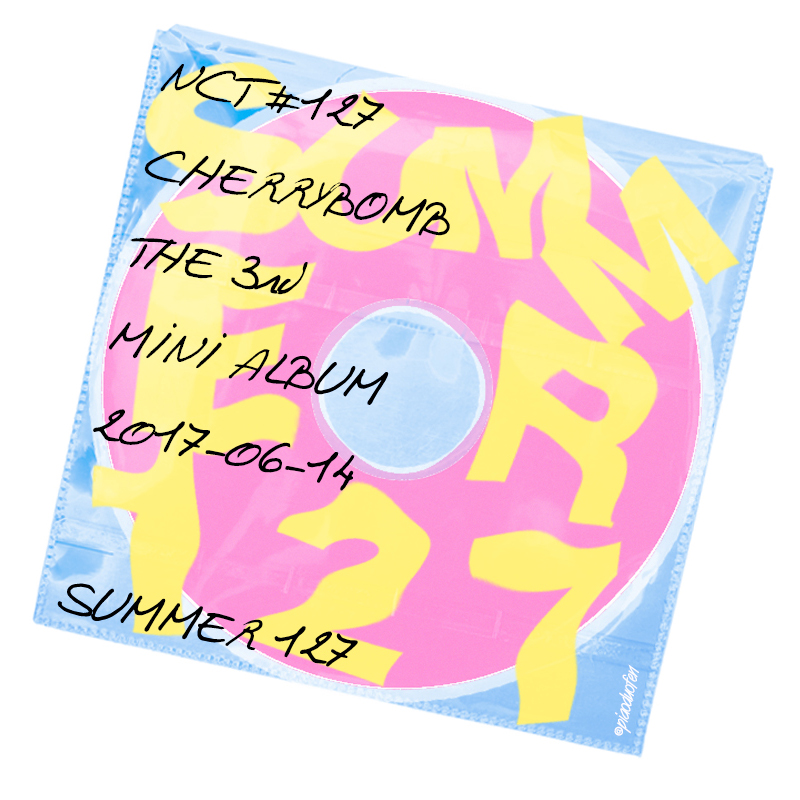 NCT #127
CHERRYBOMB
THE 3rd
MiNi ALBUM
2017-06-14
SUMMER 127
SUMM
ER
127
@piaoduofen